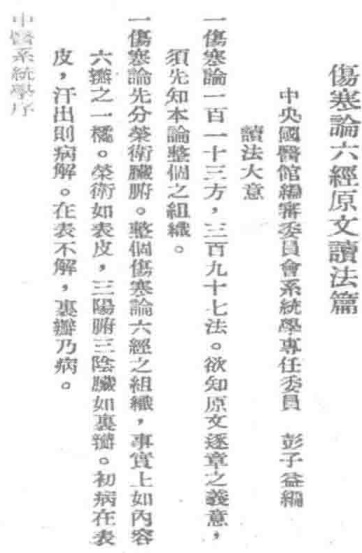 傷寒論六經原文讀法篇
中央國醫館編審委員會系統學專任委員　彭子益編
讀法大意
一傷寒論一百一十三方，三百九十七法。欲知原文逐章之義意，
須先知本論整個之組織。
一傷寒論先分榮衛臟腑。整個傷寒論六經之組織，事實上如內容
六瓣之一橘。榮衛如表皮，三陽腑三陰臟如裏瓣。初病在表
皮，汗出則病解。在表不解，裏瓣乃病。
中醫系統學序